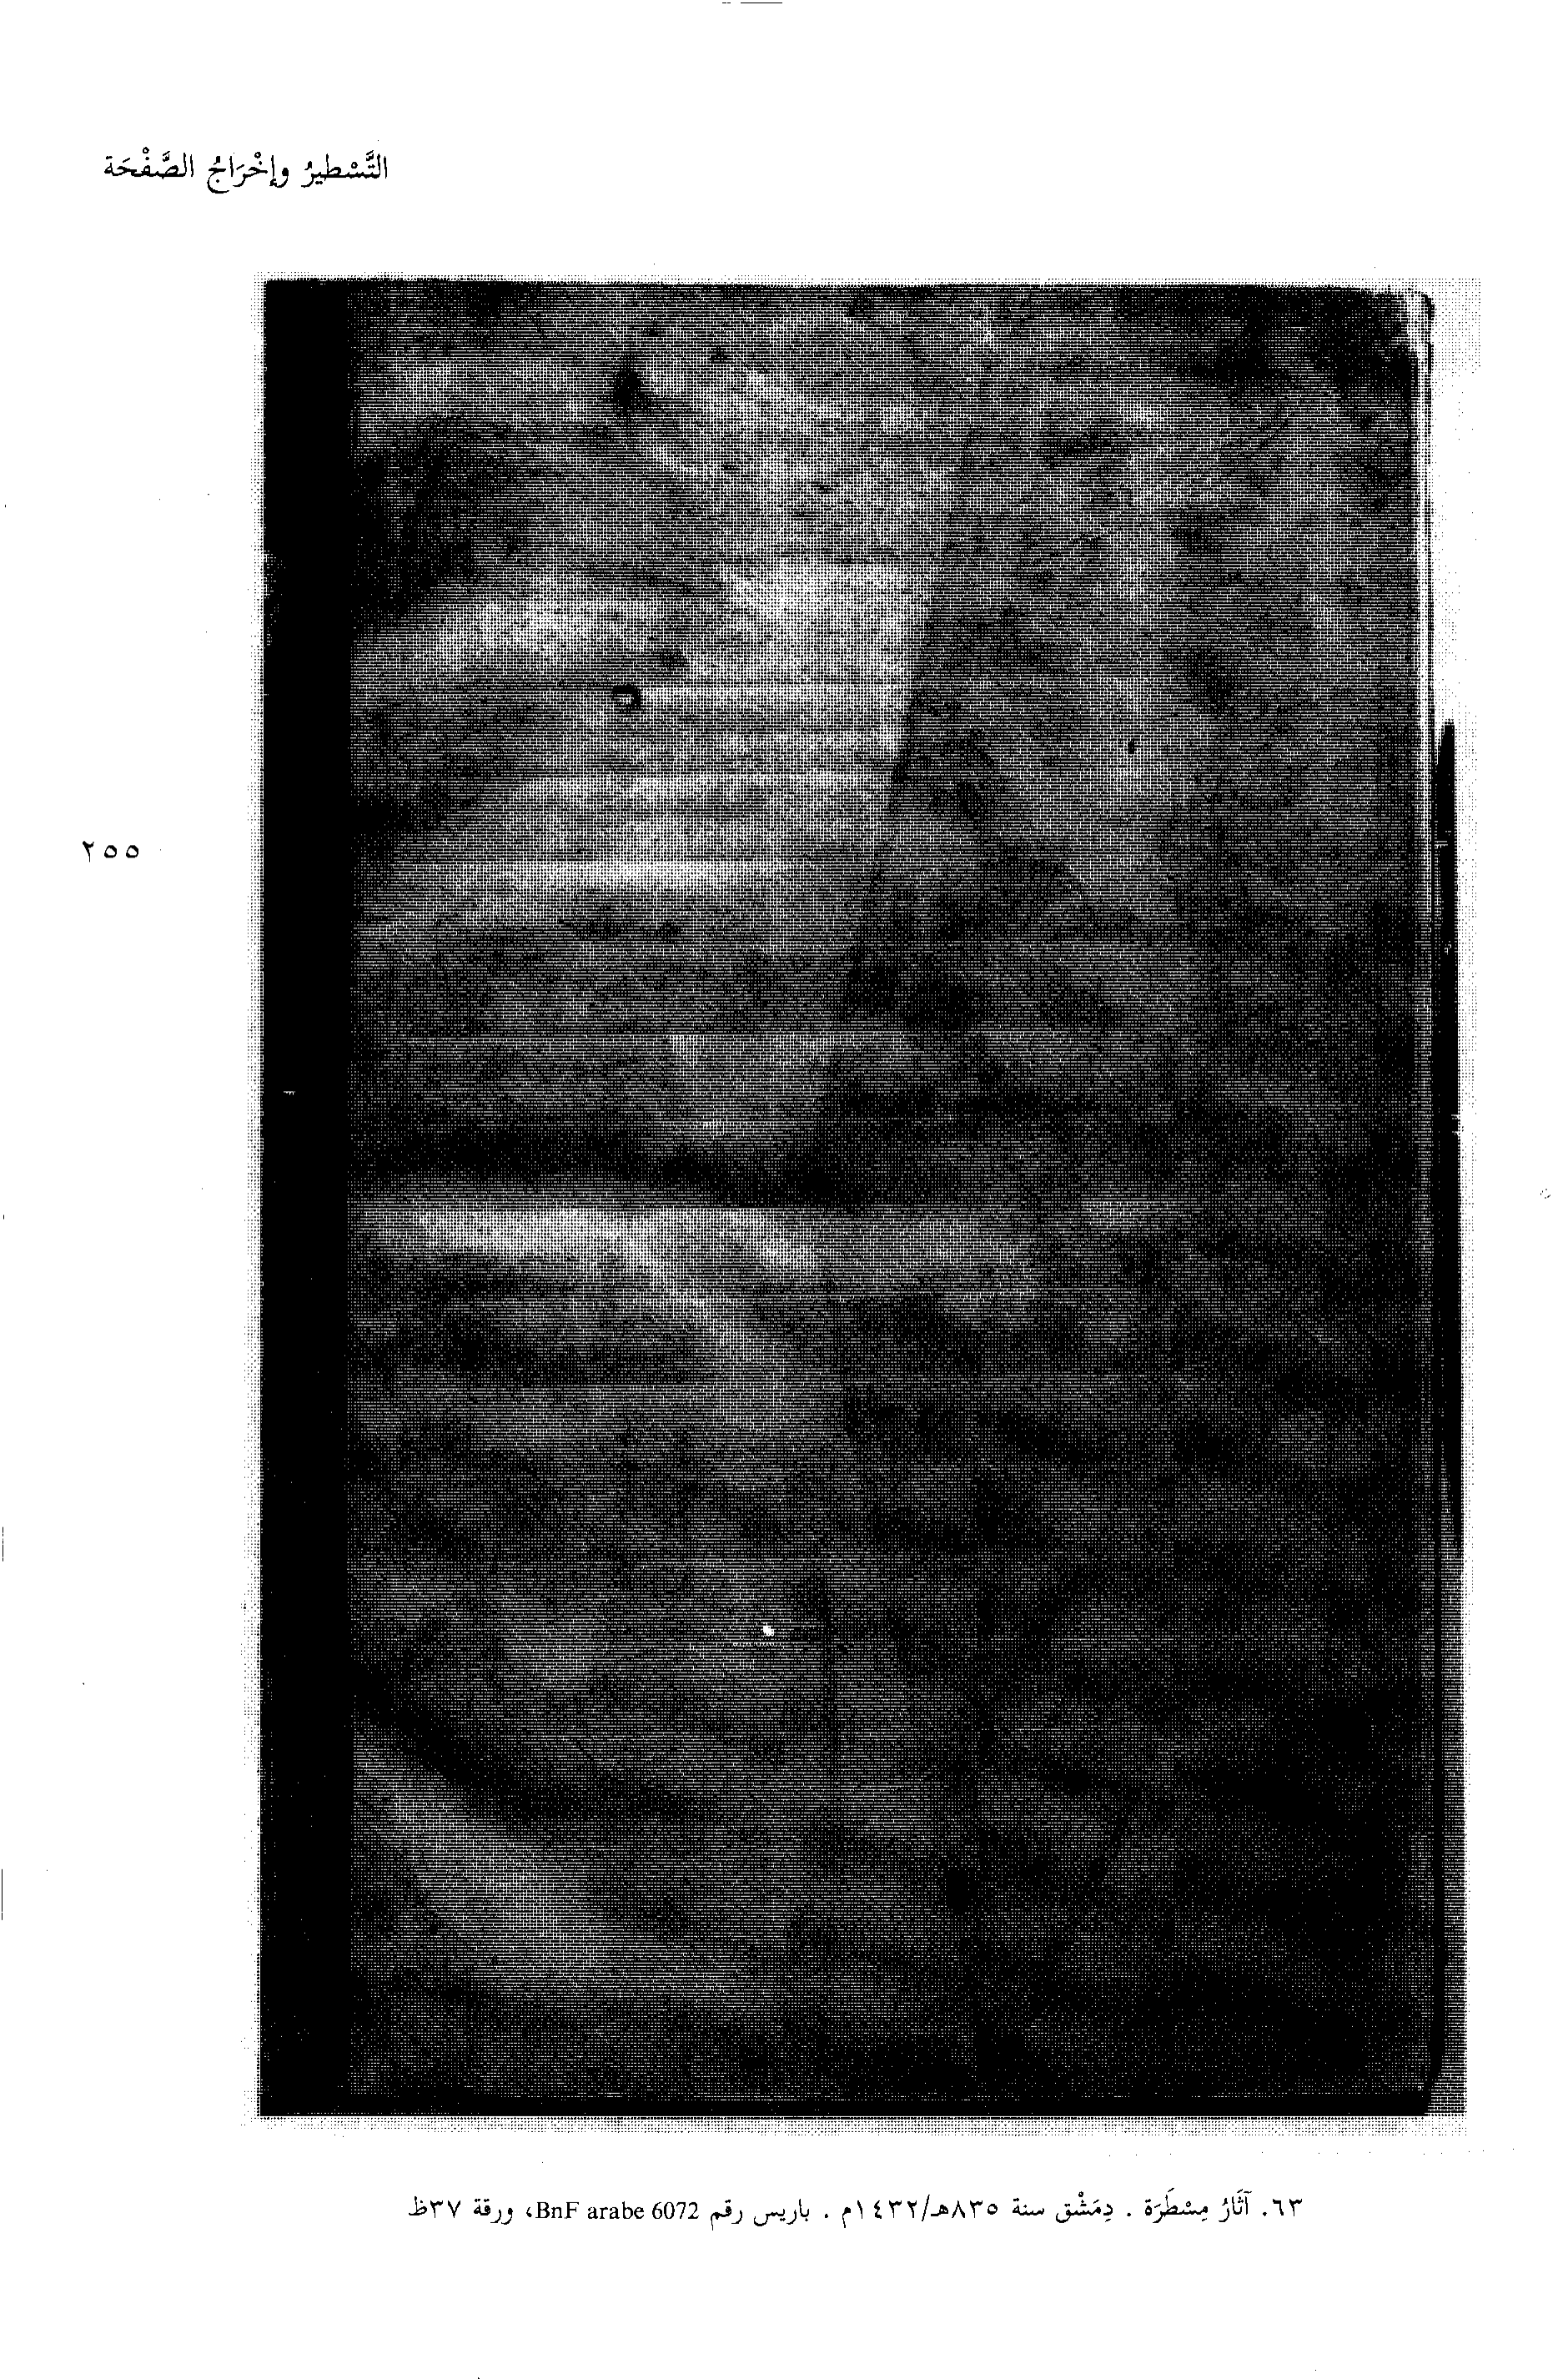 التَّسْطيرُ وإخْرَاجُ الصَّفْحَة
٢٥٥
٦٣. آثَارُ مِسْطَرَة. دِمَشْق سنة ٨٣٥هـ/١٤٣٢م. باريس رقم BnF arabe 6072، ورقة ٣٧ظ